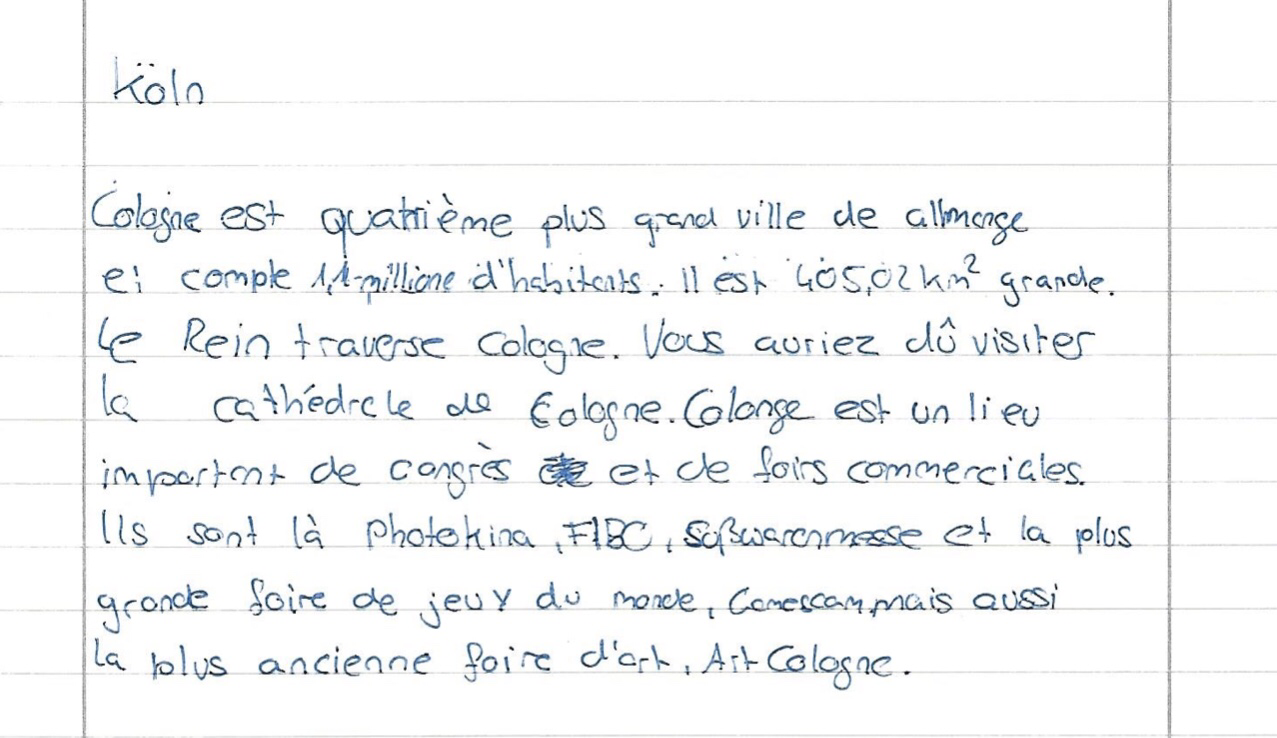 Köln
Cologne est quatrième plus grand ville de allmange
et compte 1,1 millione d'habitants. Il est 405,02 km² grande.
Le Rein traverse Cologne. Vous auriez dû visiter
la cathédrale de Cologne. Colonge est un lieu
important de congrès et de foirs commerciales.
Ils sont là Photokina, FIBC, Süßwarenmesse et la plus
grande foire de jeux du monde, Gamescom, mais aussi
la plus ancienne foire d'art, Art Cologne.